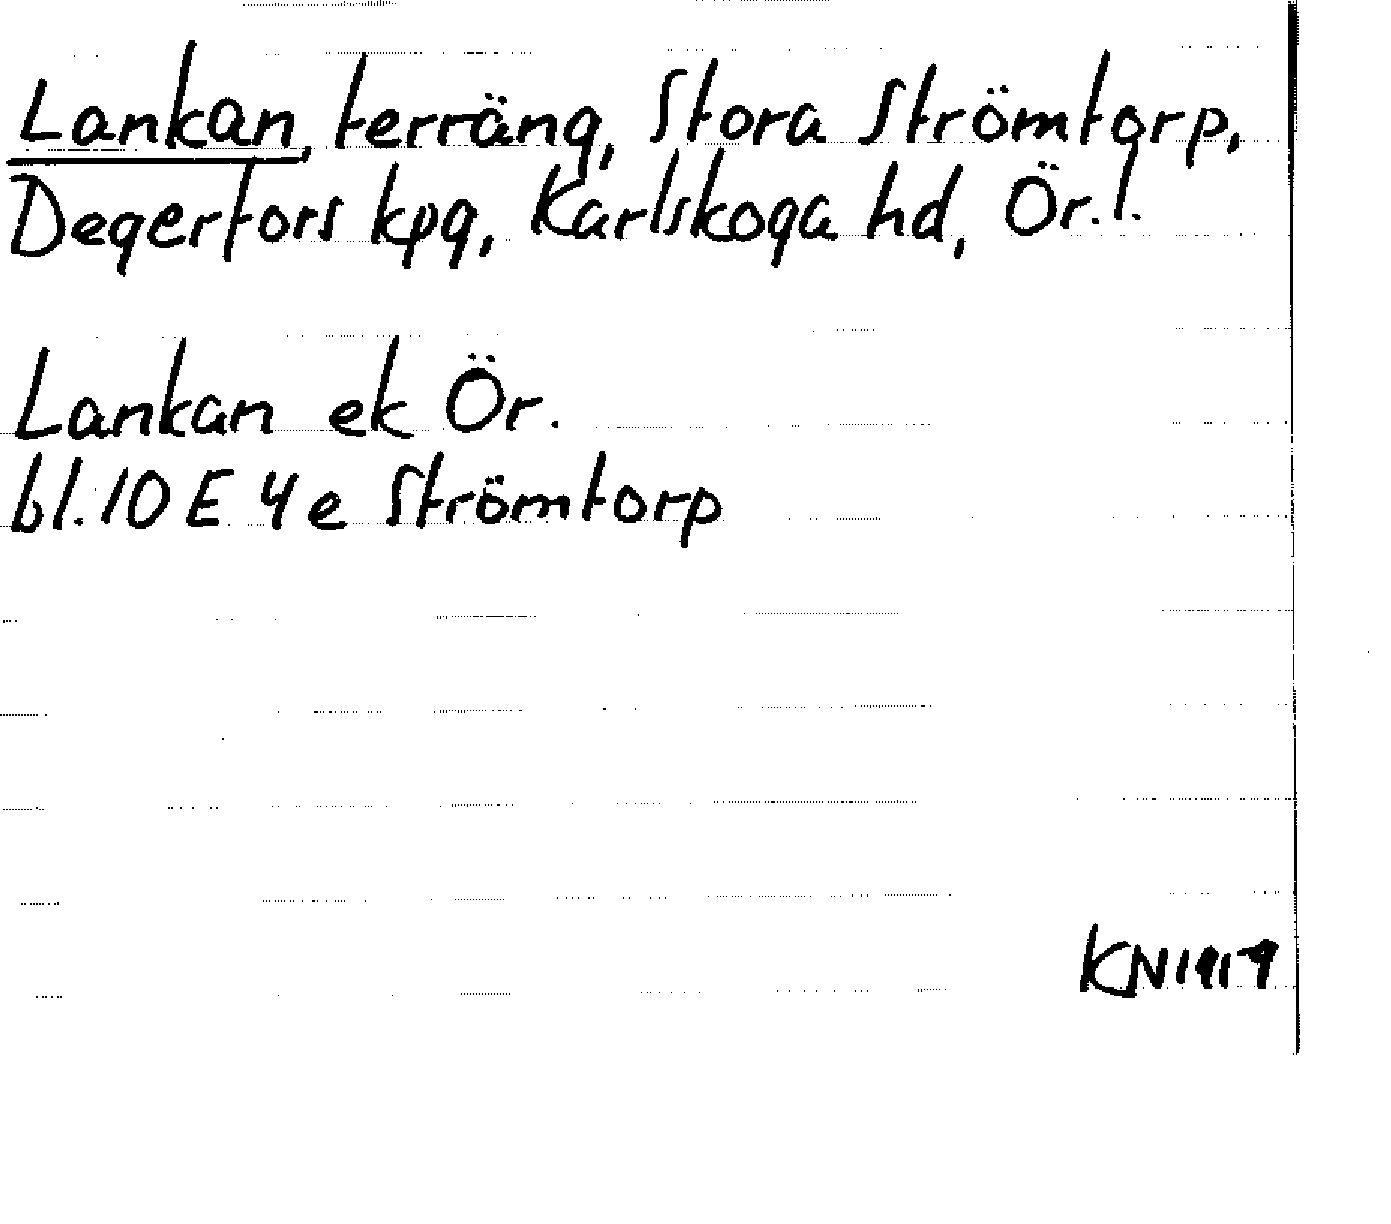 Lankan, terräng, Stora Strömtorp,
Degerfors kpg, Karlskoga hd, Ör.l.
Lankan ek Ör.
bl. 10 E 4 e Strömtorp